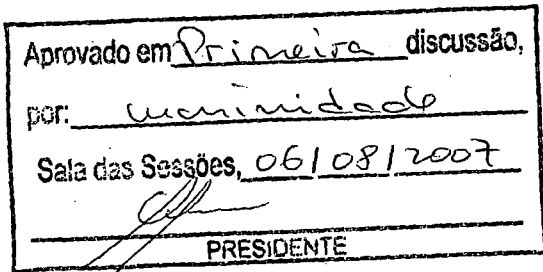 Aprovado em Primeira discussão,
por: unanimidade
Sala das Sessões, 06/08/2007
PRESIDENTE